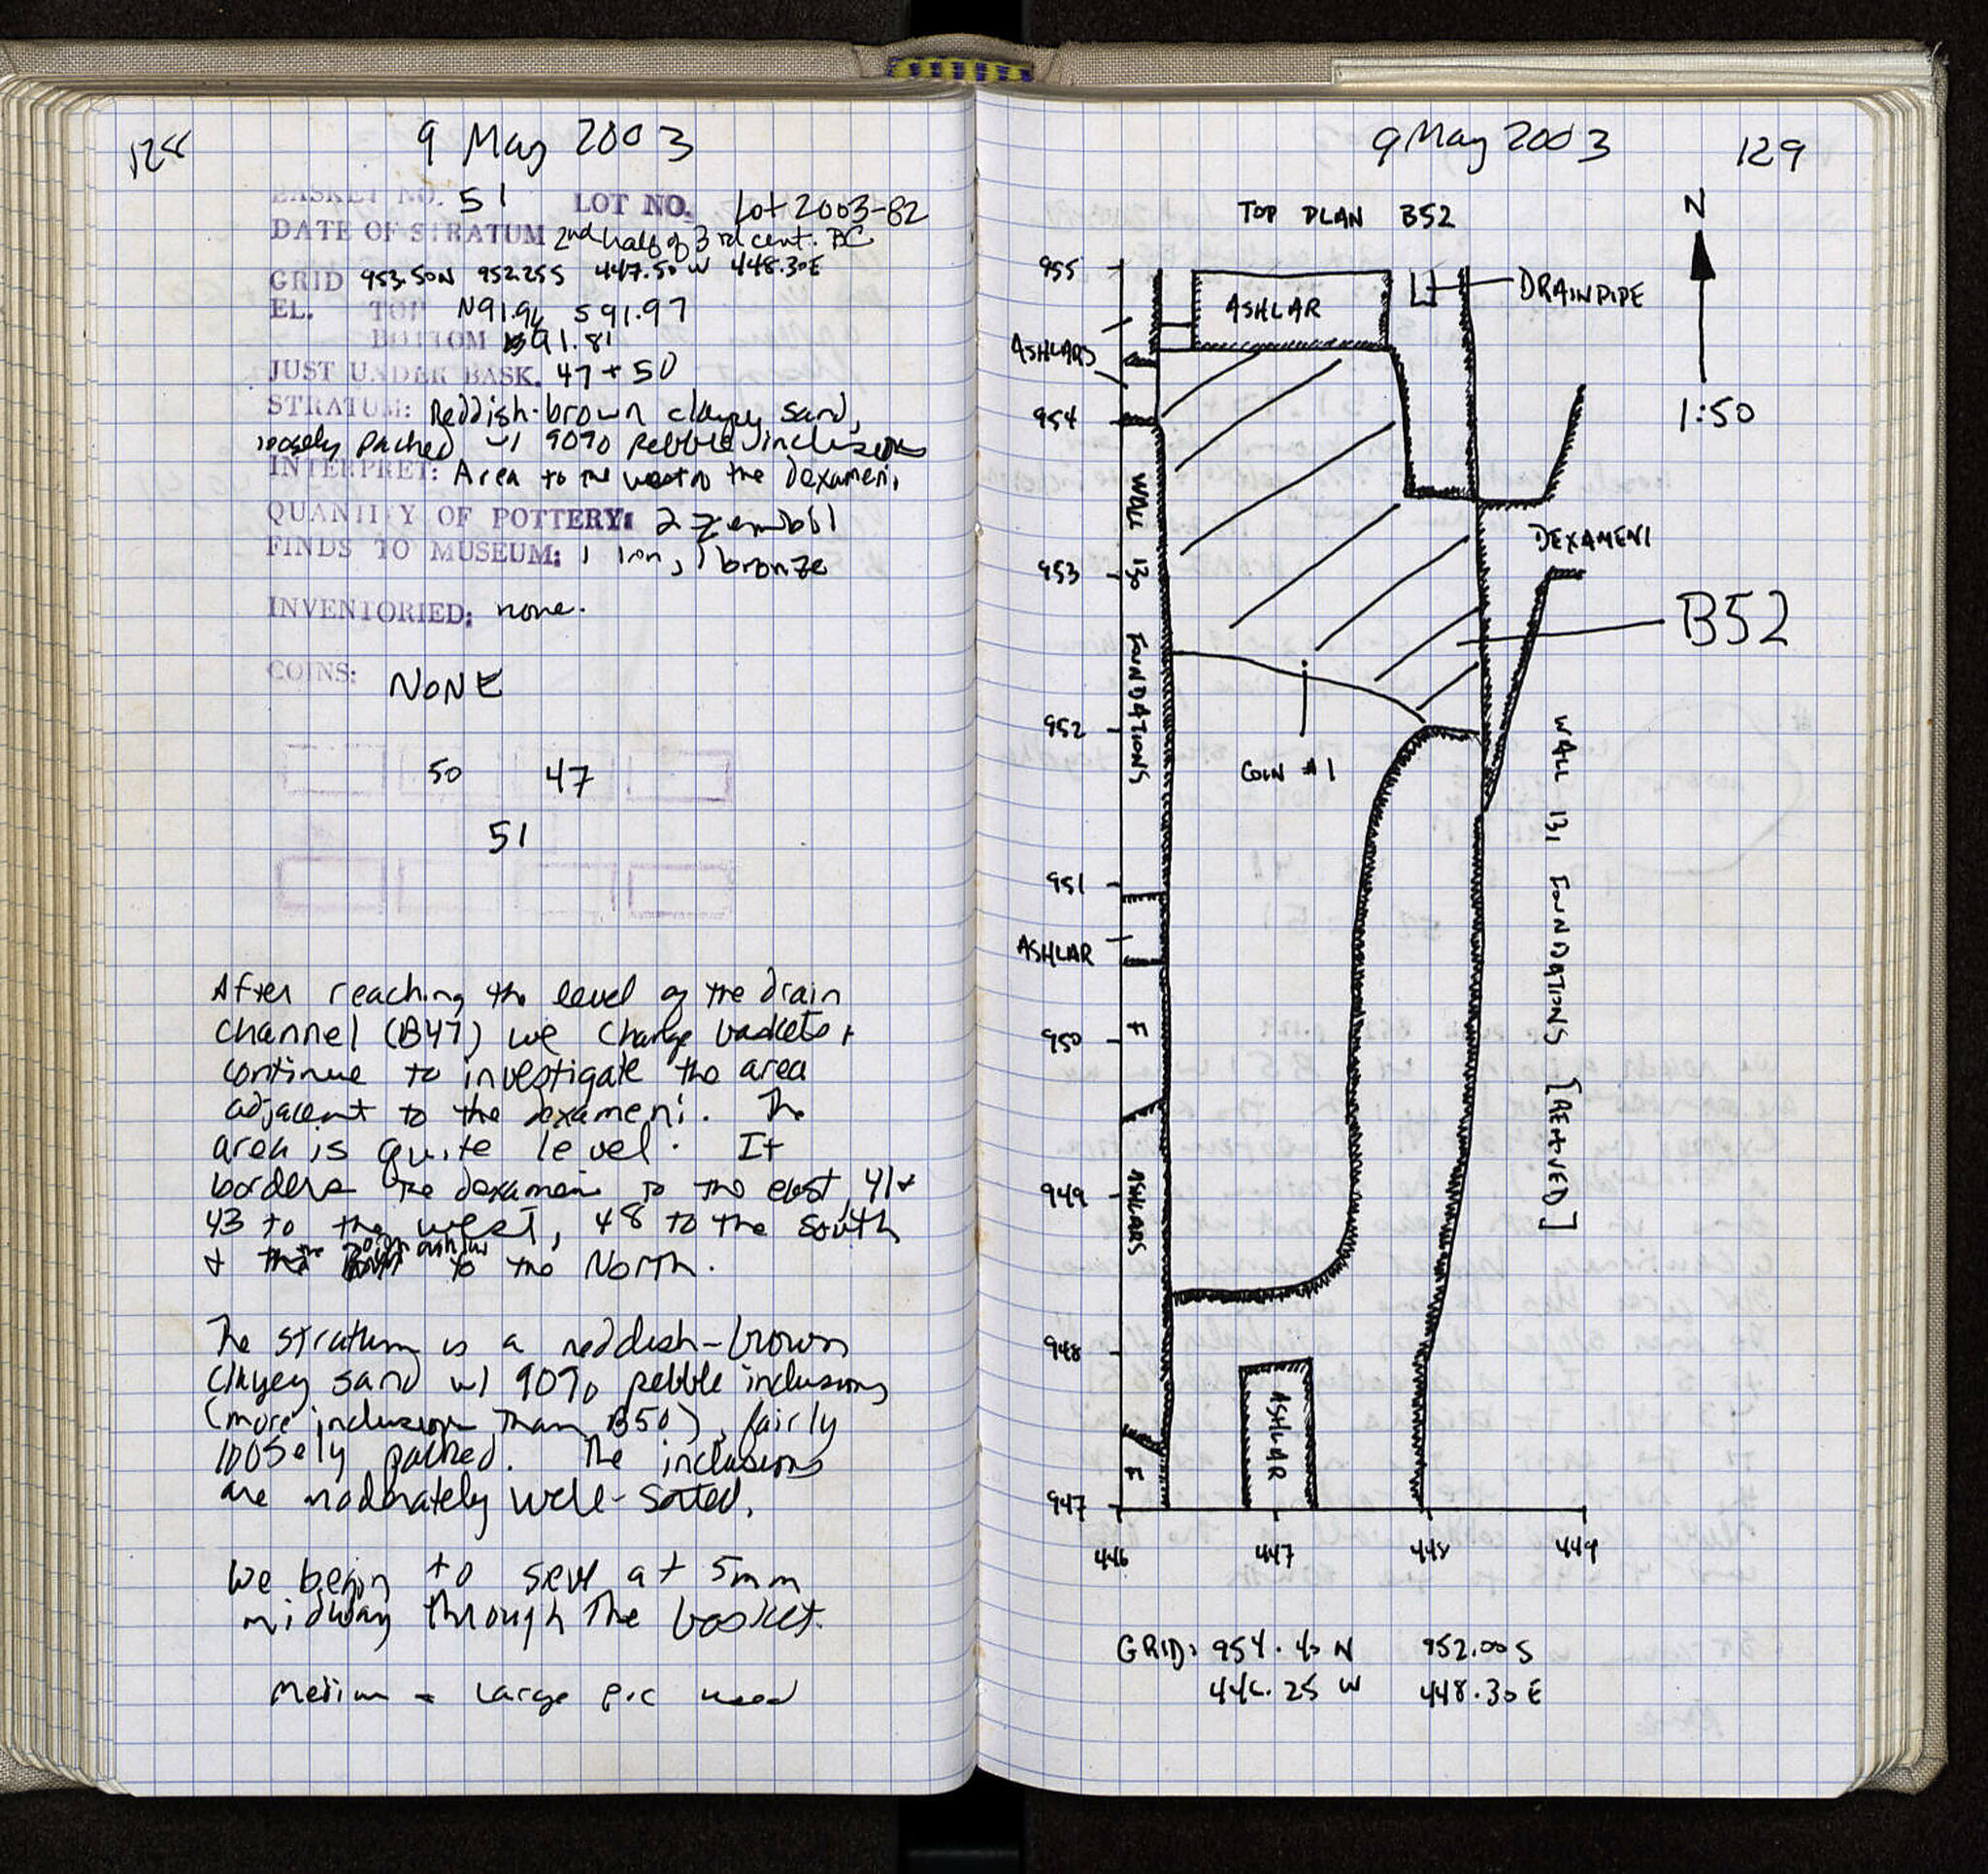 128
9 May 2003
BASKET NO. 51 LOT NO. Lot 2003-82
DATE OF STRATUM 2nd half of 3rd cent. BC
GRID 953.50N 952.25S 447.50W 448.30E
EL. TOP N91.96 S91.97
BOTTOM 91.81
JUST UNDER BASK. 47 + 50
STRATUM: Reddish-brown clayey sand,
loosely packed w/ 90% pebble inclusions
INTERPRET: Area to the west of the Dexameni
QUANTITY OF POTTERY: 2 zembili
FINDS TO MUSEUM: 1 iron, 1 bronze
INVENTORIED: none.
COINS: NONE
50 47
51
After reaching the level of the drain
channel (B47) we change baskets +
continue to investigate the area
adjacent to the dexameni. The
area is quite level. It
borders the dexameni to the east, 41+
43 to the west, 48 to the south
+ the ashlar to the North.
The stratum is a reddish-brown
clayey sand w/ 90% pebble inclusions
(more inclusions than B50), fairly
loosely packed. The inclusions
are moderately well-sorted.
We begin to sieve at 5mm
midway through the basket.
Medium - Large pic used
9 May 2003
129
TOP PLAN B52
N
1:50
955
954
953
952
951
950
949
948
947
446
447
448
449
ASHLAR
DRAINPIPE
ASHLARS
WALL 130 FOUNDATIONS
DEXAMENI
B52
COIN #1
WALL 131 FOUNDATIONS [REMOVED]
ASHLAR
F
ASHLARS
F
ASHLAR
GRID: 954.40 N 952.00 S
446.25 W 448.30 E